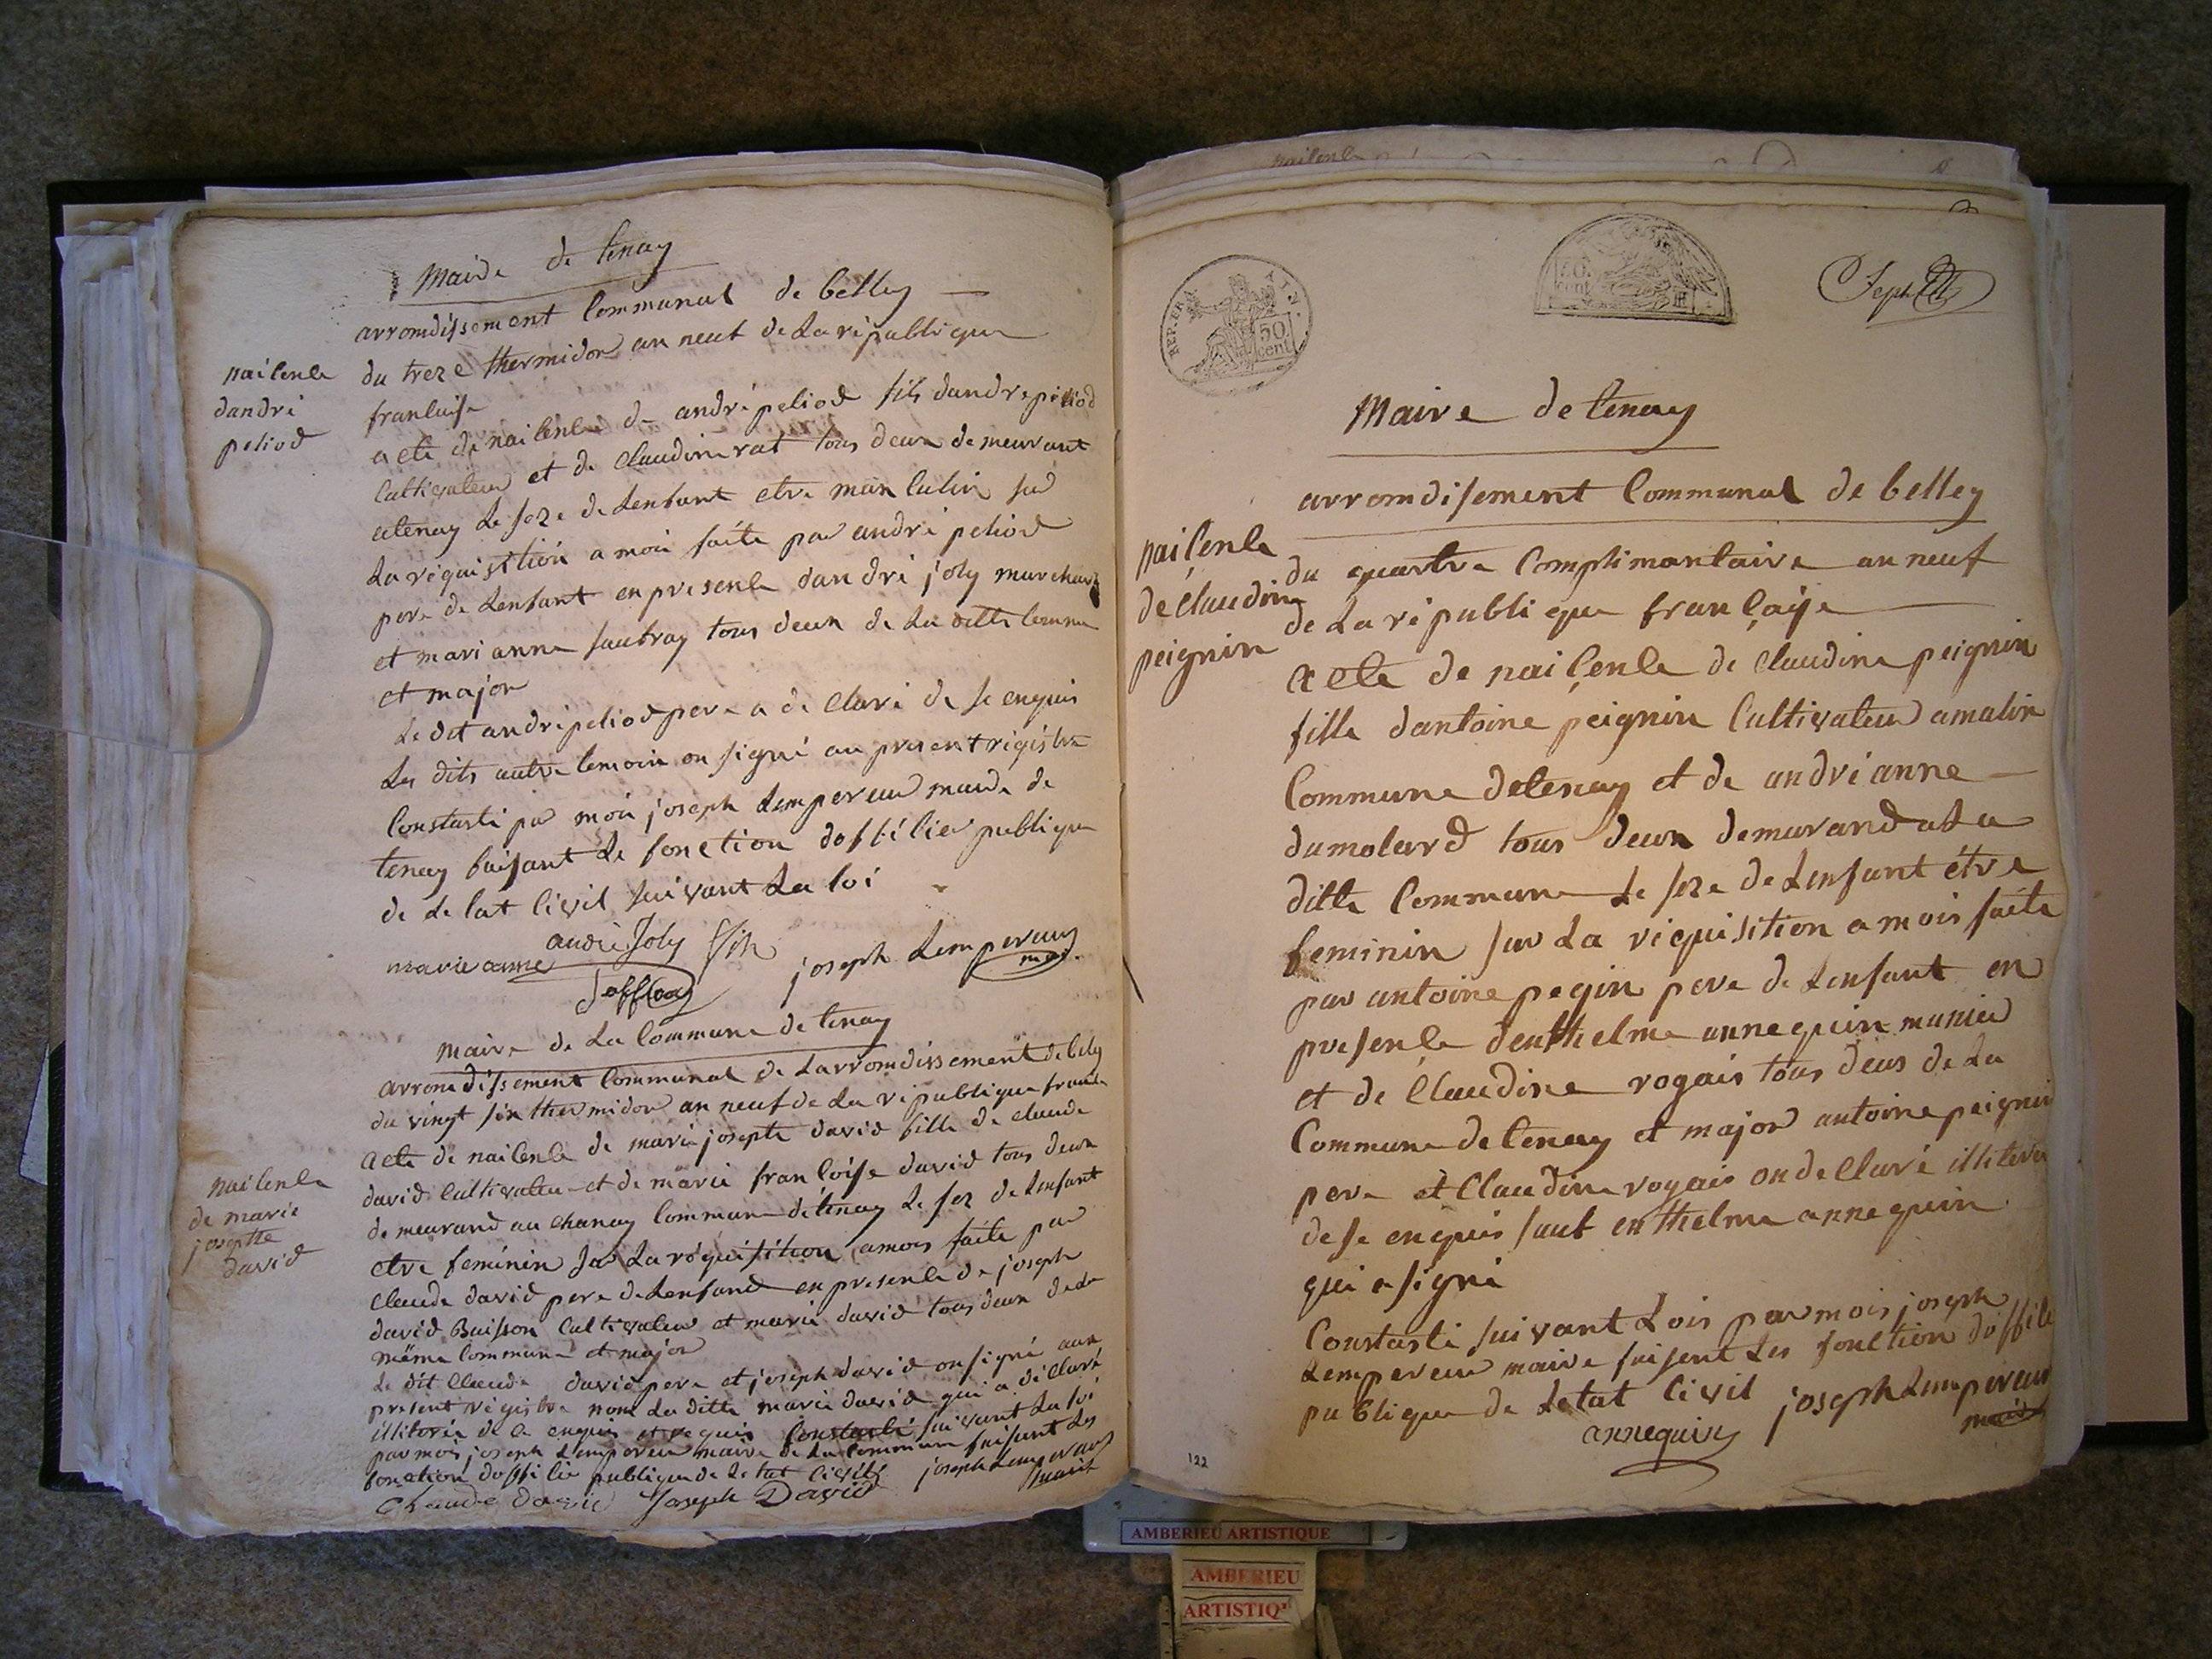 Maire de tenay
arromdissement Communal de belley
du treze thermidor an neuf de La republique
francaise
naicence
dandré
peliod
acte de naicence de andré peliod fils dandre peliod
Cultivateur et de Claudine rat tous deux demeurant
atenay Le seze de Lenfant etre masculin sur
La requisition a moi faite par andré peliod
pere de Lenfant en presence dandré joly marchand
et marianne saufray tous deux de La ditte Commune
et major
Le dit andré peliod pere a de Claré de se enquis
Les dits autre temoin on signé au present registre
Constasté par moi joseph Lempereur maire de
tenay faisant Le fonction dofficier publique
de Letat Civil suivant La loi
andré Joly fils
marie anne joseph Lempereur
Soffray mai.
maire de La Commune de tenay
arromdissement Communal de Larromdissement de beley
du vingt six thermidor an neuf de La republique francaise
naicence
de marie
josephte
david
acte de naicence de marie josephte david fille de claude
david Cultivateur et de marie francoise david tous deux
demeurand au chanay Commune de tenay Le sez de Lenfant
etre feminin sur La réquisition amois faite par
claude david pere de Lenfand en presence de joseph
david Buisson Cultivateur et marie david tous deux de La
même Commune et major
Le dit Claude david pere et joseph david on signé aux
present registre nom La ditte marie david qui a déClaré
illitorée de ce enquis et requis Constasté suivant La loi
par moi joseph Lempereur maire de La Commune faisant Les
fonction dofficier publique de Letat Civil joseph Lempereur
Claude david Joseph David maire
REP. FRA.
50
cent
Maire de tenay
arromdisement Communal de belley
naiçence
de Claudine
peignin
du quatre Complimantaire an neuf
de La republique françaije
acte de naiçence de Claudine peignin
fille dantoine peignin Cultivateur amalin
Commune detenay et de andrianne
dumolard tous deux demurand a La
ditte Commune Le seze de Lenfant étre
feminin sur La requisition a mois faite
par antoine pegin pere de Lenfant en
presençe denthelme annequin munier
et de Claudine rogais tous deus de La
Commune detenay et major antoine peignin
pere et Claudine rogais on de Claré illiteré
de se enquis sauf enthelme annequin
qui a signé
Constasté suivant Lois par mois joseph
Lempereur maire faisent Les fonction doffice
publique de Letat Civil joseph Lempereur
annequin maire
122
AMBERIEU ARTISTIQUE
AMBERIEU
ARTISTIQ